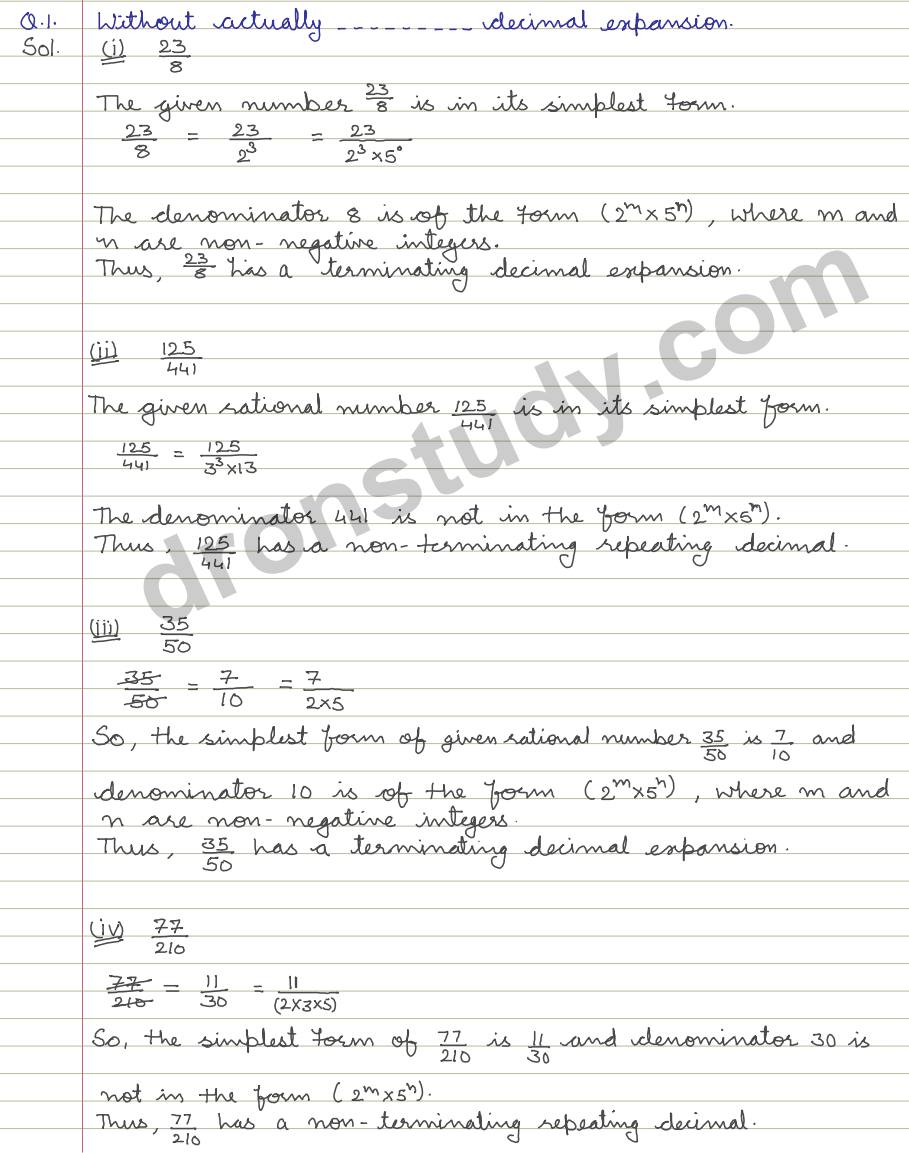 Q.1. Without actually --------- decimal expansion.
Sol. (i) 23/8
The given number 23/8 is in its simplest form.
23/8 = 23/2³ = 23/2³×5°
The denominator 8 is of the form (2ᵐ×5ⁿ), where m and
n are non-negative integers.
Thus, 23/8 has a terminating decimal expansion.
(ii) 125/441
The given rational number 125/441 is in its simplest form.
125/441 = 125/3³×13
The denominator 441 is not in the form (2ᵐ×5ⁿ).
Thus, 125/441 has a non-terminating repeating decimal.
(iii) 35/50
35/50 = 7/10 = 7/2×5
So, the simplest form of given rational number 35/50 is 7/10 and
denominator 10 is of the form (2ᵐ×5ⁿ), where m and
n are non-negative integers.
Thus, 35/50 has a terminating decimal expansion.
(iv) 77/210
77/210 = 11/30 = 11/(2×3×5)
So, the simplest form of 77/210 is 11/30 and denominator 30 is
not in the form (2ᵐ×5ⁿ).
Thus, 77/210 has a non-terminating repeating decimal.
dronstudy.com